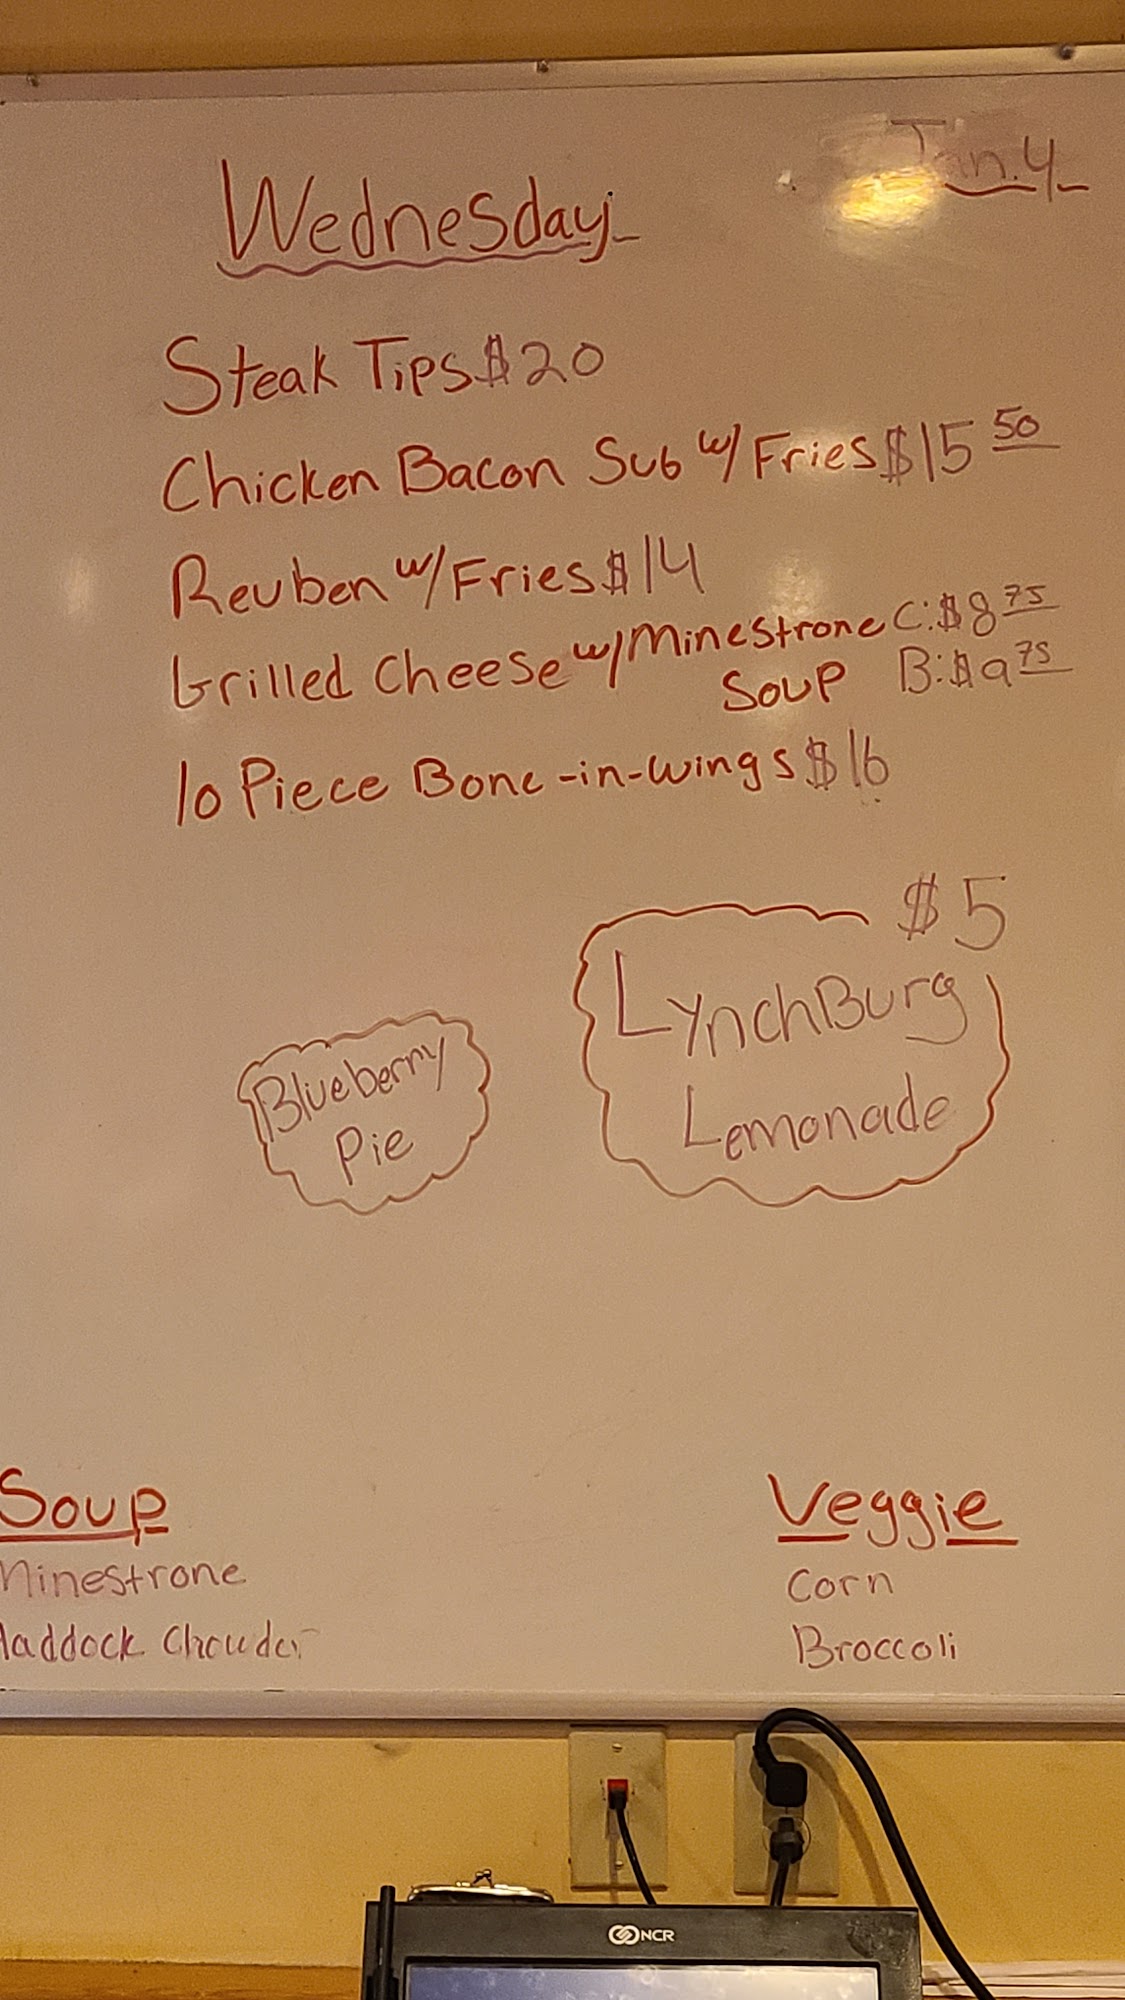 Wednesday
Jan. 4
Steak Tips $20
Chicken Bacon Sub w/ Fries $15 50
Reuben w/ Fries $14
Grilled Cheese w/ Minestrone C: $8 75
Soup B: $9 75
10 Piece Bone-in-wings $16
$5
LynchBurg
Lemonade
Blueberry
Pie
Soup
Minestrone
Haddock Chowder
Veggie
Corn
Broccoli
NCR